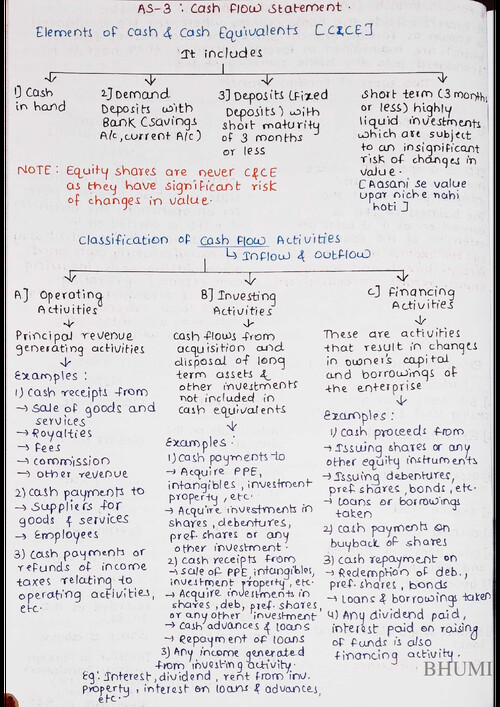 AS-3 : Cash flow statement.
Elements of cash & cash Equivalents [C&CE]
It includes
1] Cash
in hand
2] Demand
Deposits with
Bank (Savings
A/c, current A/c)
3] Deposits (Fixed
Deposits) with
short maturity
of 3 months
or less
short term (3 months
or less) highly
liquid investments
which are subject
to an insignificant
risk of changes in
value.
[Aasani se value
upar niche nahi
hoti]
NOTE : Equity shares are never C&CE
as they have significant risk
of changes in value.
Classification of cash flow Activities
Inflow & outflow
A] Operating
Activities
Principal revenue
generating activities
Examples :
1) Cash receipts from
→ Sale of goods and
services
→ Royalties
→ Fees
→ commission
→ other revenue
2) cash payments to
→ Suppliers for
goods & services
→ Employees
3) Cash payments or
refunds of income
taxes relating to
operating activities,
etc.
B] Investing
Activities
cash flows from
acquisition and
disposal of long
term assets &
other investments
not included in
cash equivalents
Examples :
1) Cash payments to
→ Acquire PPE,
intangibles, investment
property, etc.
→ Acquire investments in
shares, debentures,
pref. shares or any
other investment.
2) cash receipts from
→ Sale of PPE, intangibles,
investment property, etc.
→ Acquire investments in
shares, deb, pref. shares,
or any other investment
→ Cash advances & loans
→ Repayment of loans
3) Any income generated
from investing activity.
Eg: Interest, dividend, rent from inv.
property, interest on loans & advances,
etc.
C] Financing
Activities
These are activities
that result in changes
in owner's capital
and borrowings of
the enterprise
Examples :
1) Cash proceeds from
→ Issuing shares or any
other equity instruments
→ Issuing debentures,
pref shares, bonds, etc.
→ Loans or borrowings
taken
2) cash payment on
buyback of shares
3) cash repayment on
→ Redemption of deb.,
pref. shares, bonds
→ Loans & borrowings taken
4) Any dividend paid,
interest paid on raising
of funds is also
financing activity.
BHUMI